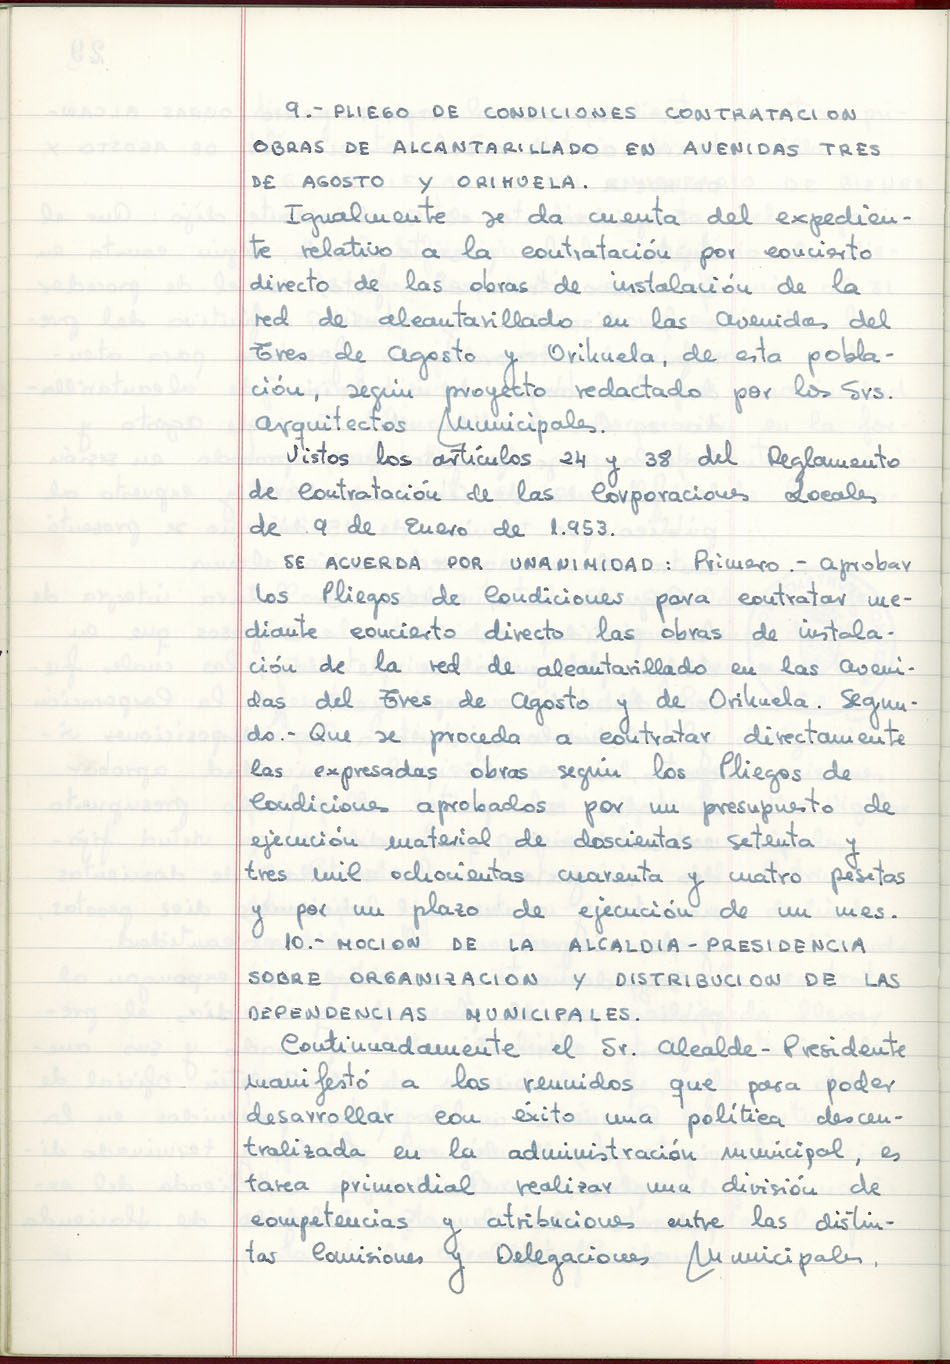 9.- PLIEGO DE CONDICIONES CONTRATACION
OBRAS DE ALCANTARILLADO EN AVENIDAS TRES
DE AGOSTO Y ORIHUELA.
Igualmente se da cuenta del expedien-
te relativo a la contratación por concierto
directo de las obras de instalación de la
red de alcantarillado en las Avenidas del
Tres de Agosto y Orihuela, de esta pobla-
ción, según proyecto redactado por los Srs.
Arquitectos Municipales.
Vistos los artículos 24 y 38 del Reglamento
de Contratación de las Corporaciones Locales
de 9 de Enero de 1.953.
SE ACUERDA POR UNANIMIDAD: Primero.- Aprobar
los Pliegos de Condiciones para contratar me-
diante concierto directo las obras de instala-
ción de la red de alcantarillado en las Aveni-
das del Tres de Agosto y de Orihuela. Segun-
do.- Que se proceda a contratar directamente
las expresadas obras según los Pliegos de
Condiciones aprobados por un presupuesto de
ejecución material de doscientas setenta y
tres mil ochocientas cuarenta y cuatro pesetas
y por un plazo de ejecución de un mes.
10.- MOCION DE LA ALCALDIA-PRESIDENCIA
SOBRE ORGANIZACION Y DISTRIBUCION DE LAS
DEPENDENCIAS MUNICIPALES.
Continuadamente el Sr. Alcalde-Presidente
manifestó a los reunidos que para poder
desarrollar con éxito una política descen-
tralizada en la administración municipal, es
tarea primordial realizar una división de
competencias y atribuciones entre las distin-
tas Comisiones y Delegaciones Municipales.